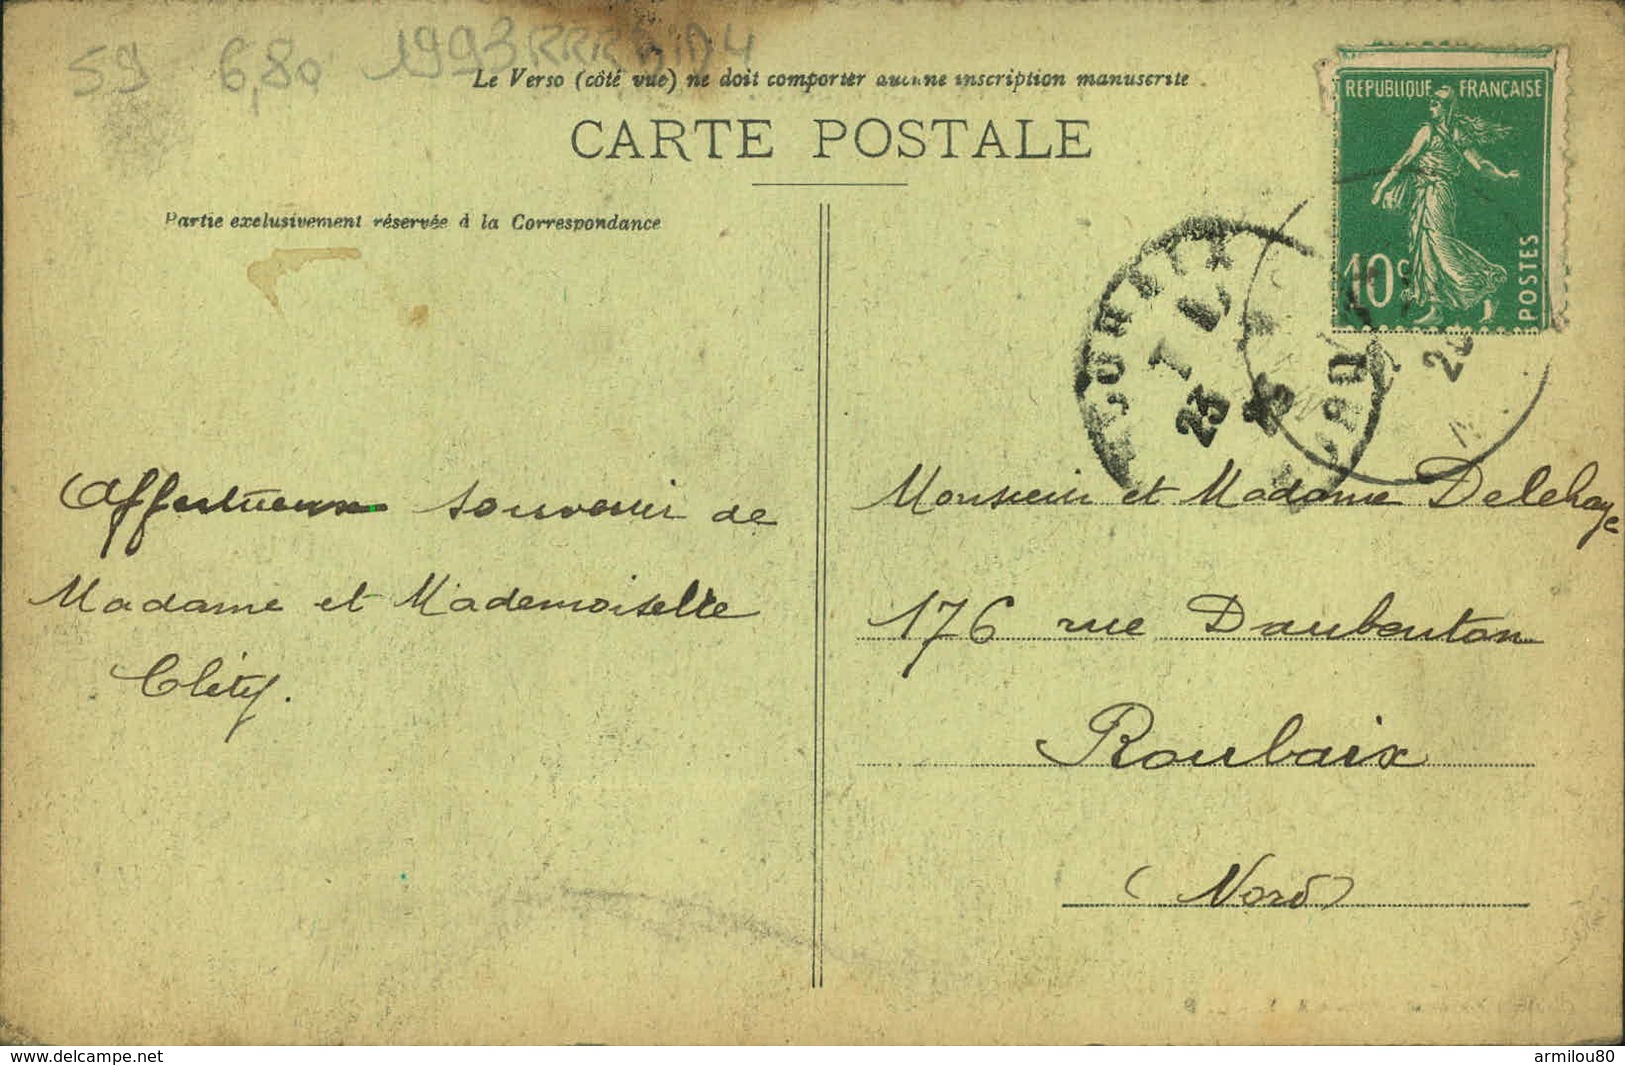 59 6,80
Le Verso (côté vue) ne doit comporter aucune inscription manuscrite
CARTE POSTALE
Partie exclusivement réservée à la Correspondance
REPUBLIQUE FRANÇAISE
10c
POSTES
23
Affectueux souvenir de
Madame et Mademoiselle
Cléty.
Monsieur et Madame Delehaye
176 rue Daubenton
Roubaix
(Nord)
www.delcampe.net
armilou80